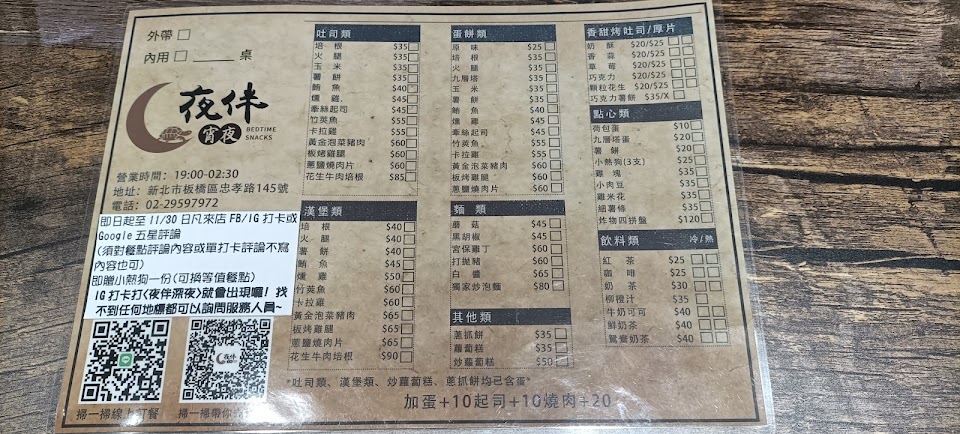 外帶 □
內用 □ ______ 桌
夜伴
宵夜
BEDTIME
SNACKS
營業時間：19:00-02:30
地址：新北市板橋區忠孝路145號
電話：02-29597972
即日起至 11/30 日凡來店 FB/IG 打卡或
Google 五星評論
(須對餐點評論內容或單打卡評論不寫
內容也可)
即贈小熱狗一份(可換等值餐點)
IG 打卡打<夜伴深夜>就會出現囉! 找
不到任何地標都可以詢問服務人員~
夜伴
掃一掃線上訂餐
掃一掃帶你
吐司類
培根 $35
火腿 $35
玉米 $35
薯餅 $35
鮪魚 $40
燻雞 $45
牽絲起司 $45
竹莢魚 $55
卡拉雞 $55
黃金泡菜豬肉 $60
板烤雞腿 $60
蔥鹽燒肉片 $60
花生牛肉培根 $85
漢堡類
培根 $40
火腿 $40
薯餅 $40
鮪魚 $45
燻雞 $50
竹莢魚 $60
卡拉雞 $60
黃金泡菜豬肉 $65
板烤雞腿 $65
蔥鹽燒肉片 $65
花生牛肉培根 $90
蛋餅類
原味 $25
培根 $35
火腿 $35
九層塔 $35
玉米 $35
薯餅 $35
鮪魚 $40
燻雞 $45
牽絲起司 $45
竹莢魚 $55
卡拉雞 $55
黃金泡菜豬肉 $60
板烤雞腿 $60
蔥鹽燒肉片 $60
麵類
蘑菇 $45
黑胡椒 $45
宮保雞丁 $60
打拋豬 $60
白醬 $65
獨家炒泡麵 $80
其他類
蔥抓餅 $35
蘿蔔糕 $35
炒蘿蔔糕 $50
香甜烤吐司/厚片
奶酥 $20/$25
香蒜 $20/$25
草莓 $20/$25
巧克力 $20/$25
顆粒花生 $20/$25
巧克力薯餅 $35/X
點心類
荷包蛋 $10
九層塔蛋 $20
薯餅 $20
小熱狗(3支) $25
雞塊 $35
小肉豆 $35
雞米花 $35
細薯條 $35
炸物四拼盤 $120
飲料類 冷/熱
紅茶 $25
咖啡 $25
奶茶 $30
柳橙汁 $35
牛奶可可 $40
鮮奶茶 $40
鴛鴦奶茶 $40
*吐司類、漢堡類、炒蘿蔔糕、蔥抓餅均已含蛋*
加蛋+10起司+10燒肉+20